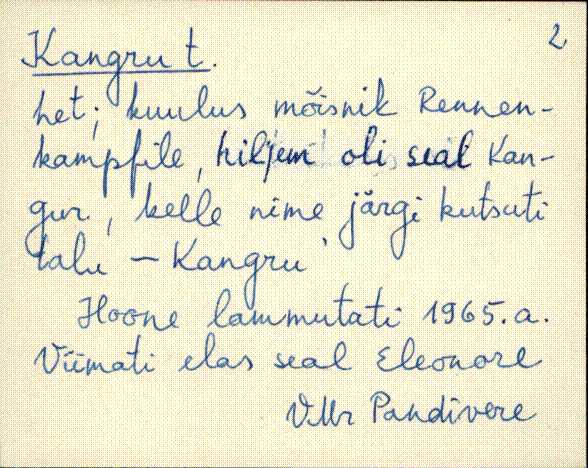 2
Kangru t.
het; kuulus mõisnik Rennen-
kampfile, hiljem oli seal Kan-
gur, kelle nime järgi kutsuti
talu — Kangru
Hoone lammutati 1965. a.
Viimati elas seal Eleonore
V.Mr Pandivere